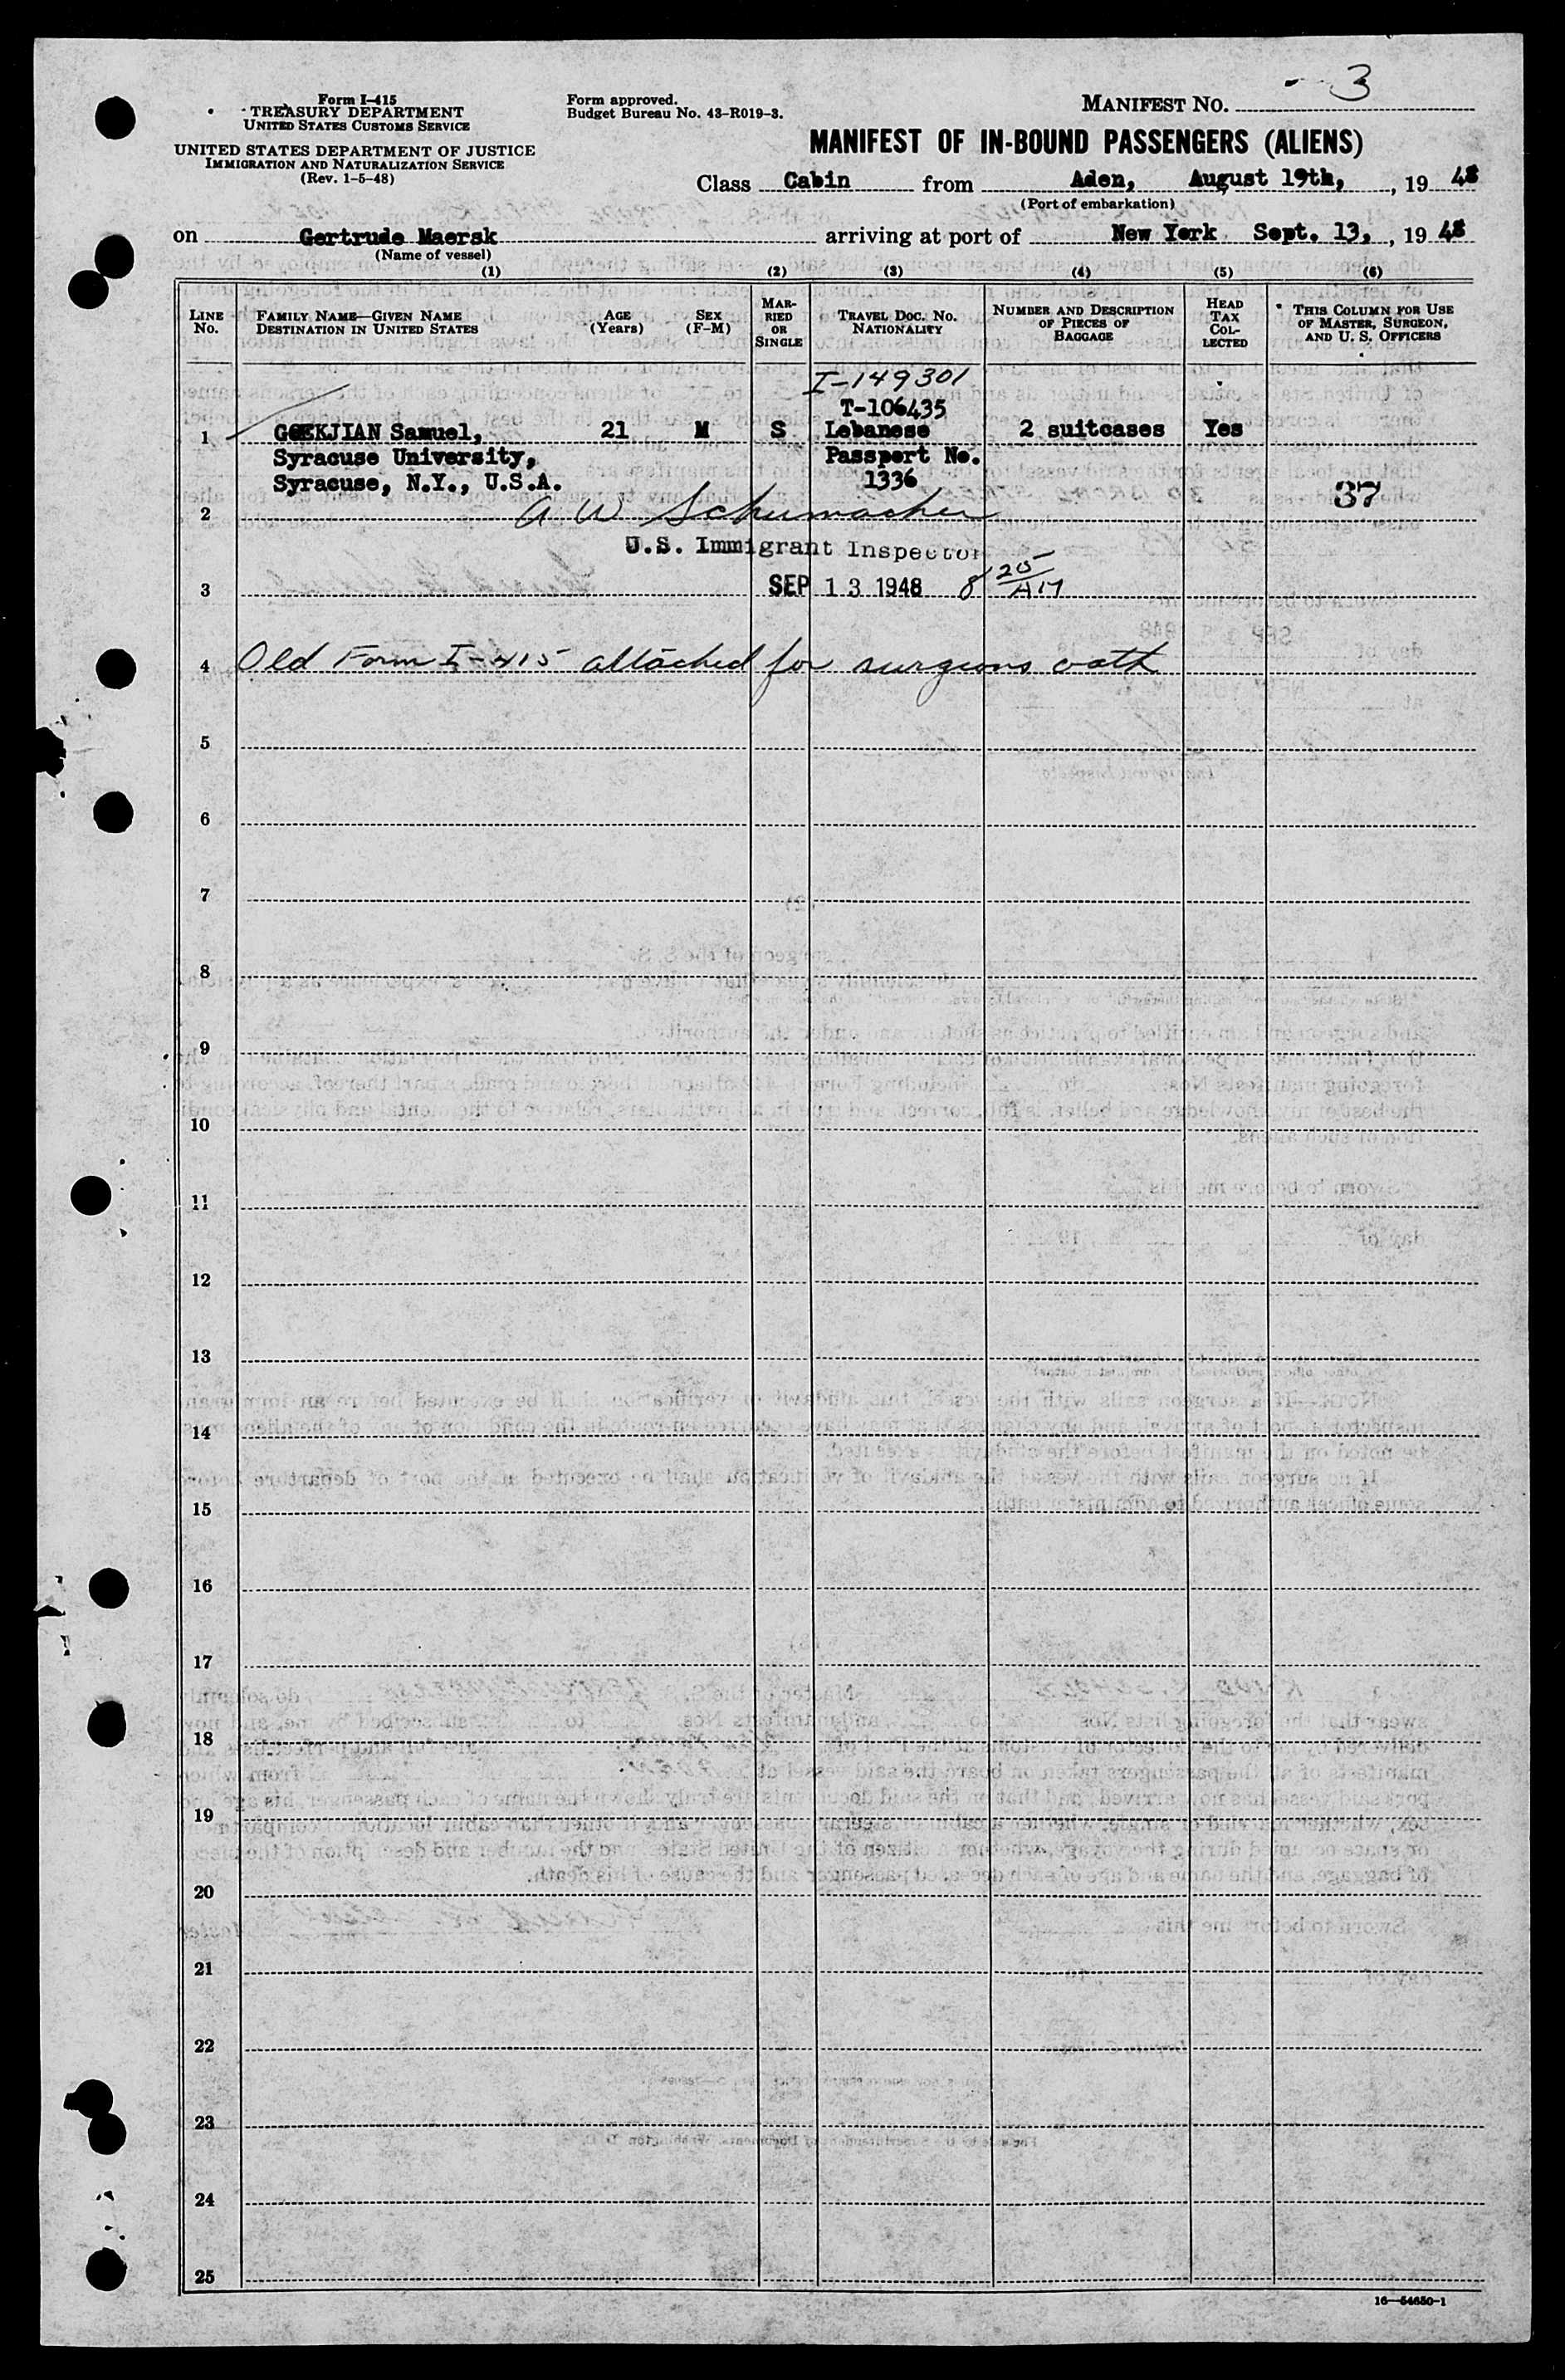 Form I-415
TREASURY DEPARTMENT
UNITED STATES CUSTOMS SERVICE
UNITED STATES DEPARTMENT OF JUSTICE
IMMIGRATION AND NATURALIZATION SERVICE
(Rev. 1-5-48)
Form approved.
Budget Bureau No. 43-R019-3.
MANIFEST NO. 3
MANIFEST OF IN-BOUND PASSENGERS (ALIENS)
Class Cabin from Aden, August 19th, , 19 48
(Port of embarkation)
on Gertrude Maersk arriving at port of New York Sept. 13, , 19 48
(Name of vessel)
(1) (2) (3) (4) (5) (6)
LINE No.
FAMILY NAME—GIVEN NAME
DESTINATION IN UNITED STATES
AGE (Years)
SEX (F-M)
MARRIED OR SINGLE
TRAVEL DOC. NO. NATIONALITY
NUMBER AND DESCRIPTION OF PIECES OF BAGGAGE
HEAD TAX COLLECTED
THIS COLUMN FOR USE OF MASTER, SURGEON, AND U. S. OFFICERS
I-149301
T-106435
1 GOEKJIAN Samuel, 21 M S Lebanese 2 suitcases Yes
Syracuse University, Passport No.
Syracuse, N.Y., U.S.A. 1336
37
2 A W Schumacher
U.S. Immigrant Inspector
3 SEP 13 1948 8 25/AM
4 Old Form I-415 attached for surgeons oath
5
6
7
8
9
10
11
12
13
14
15
16
17
18
19
20
21
22
23
24
25
16—54650-1